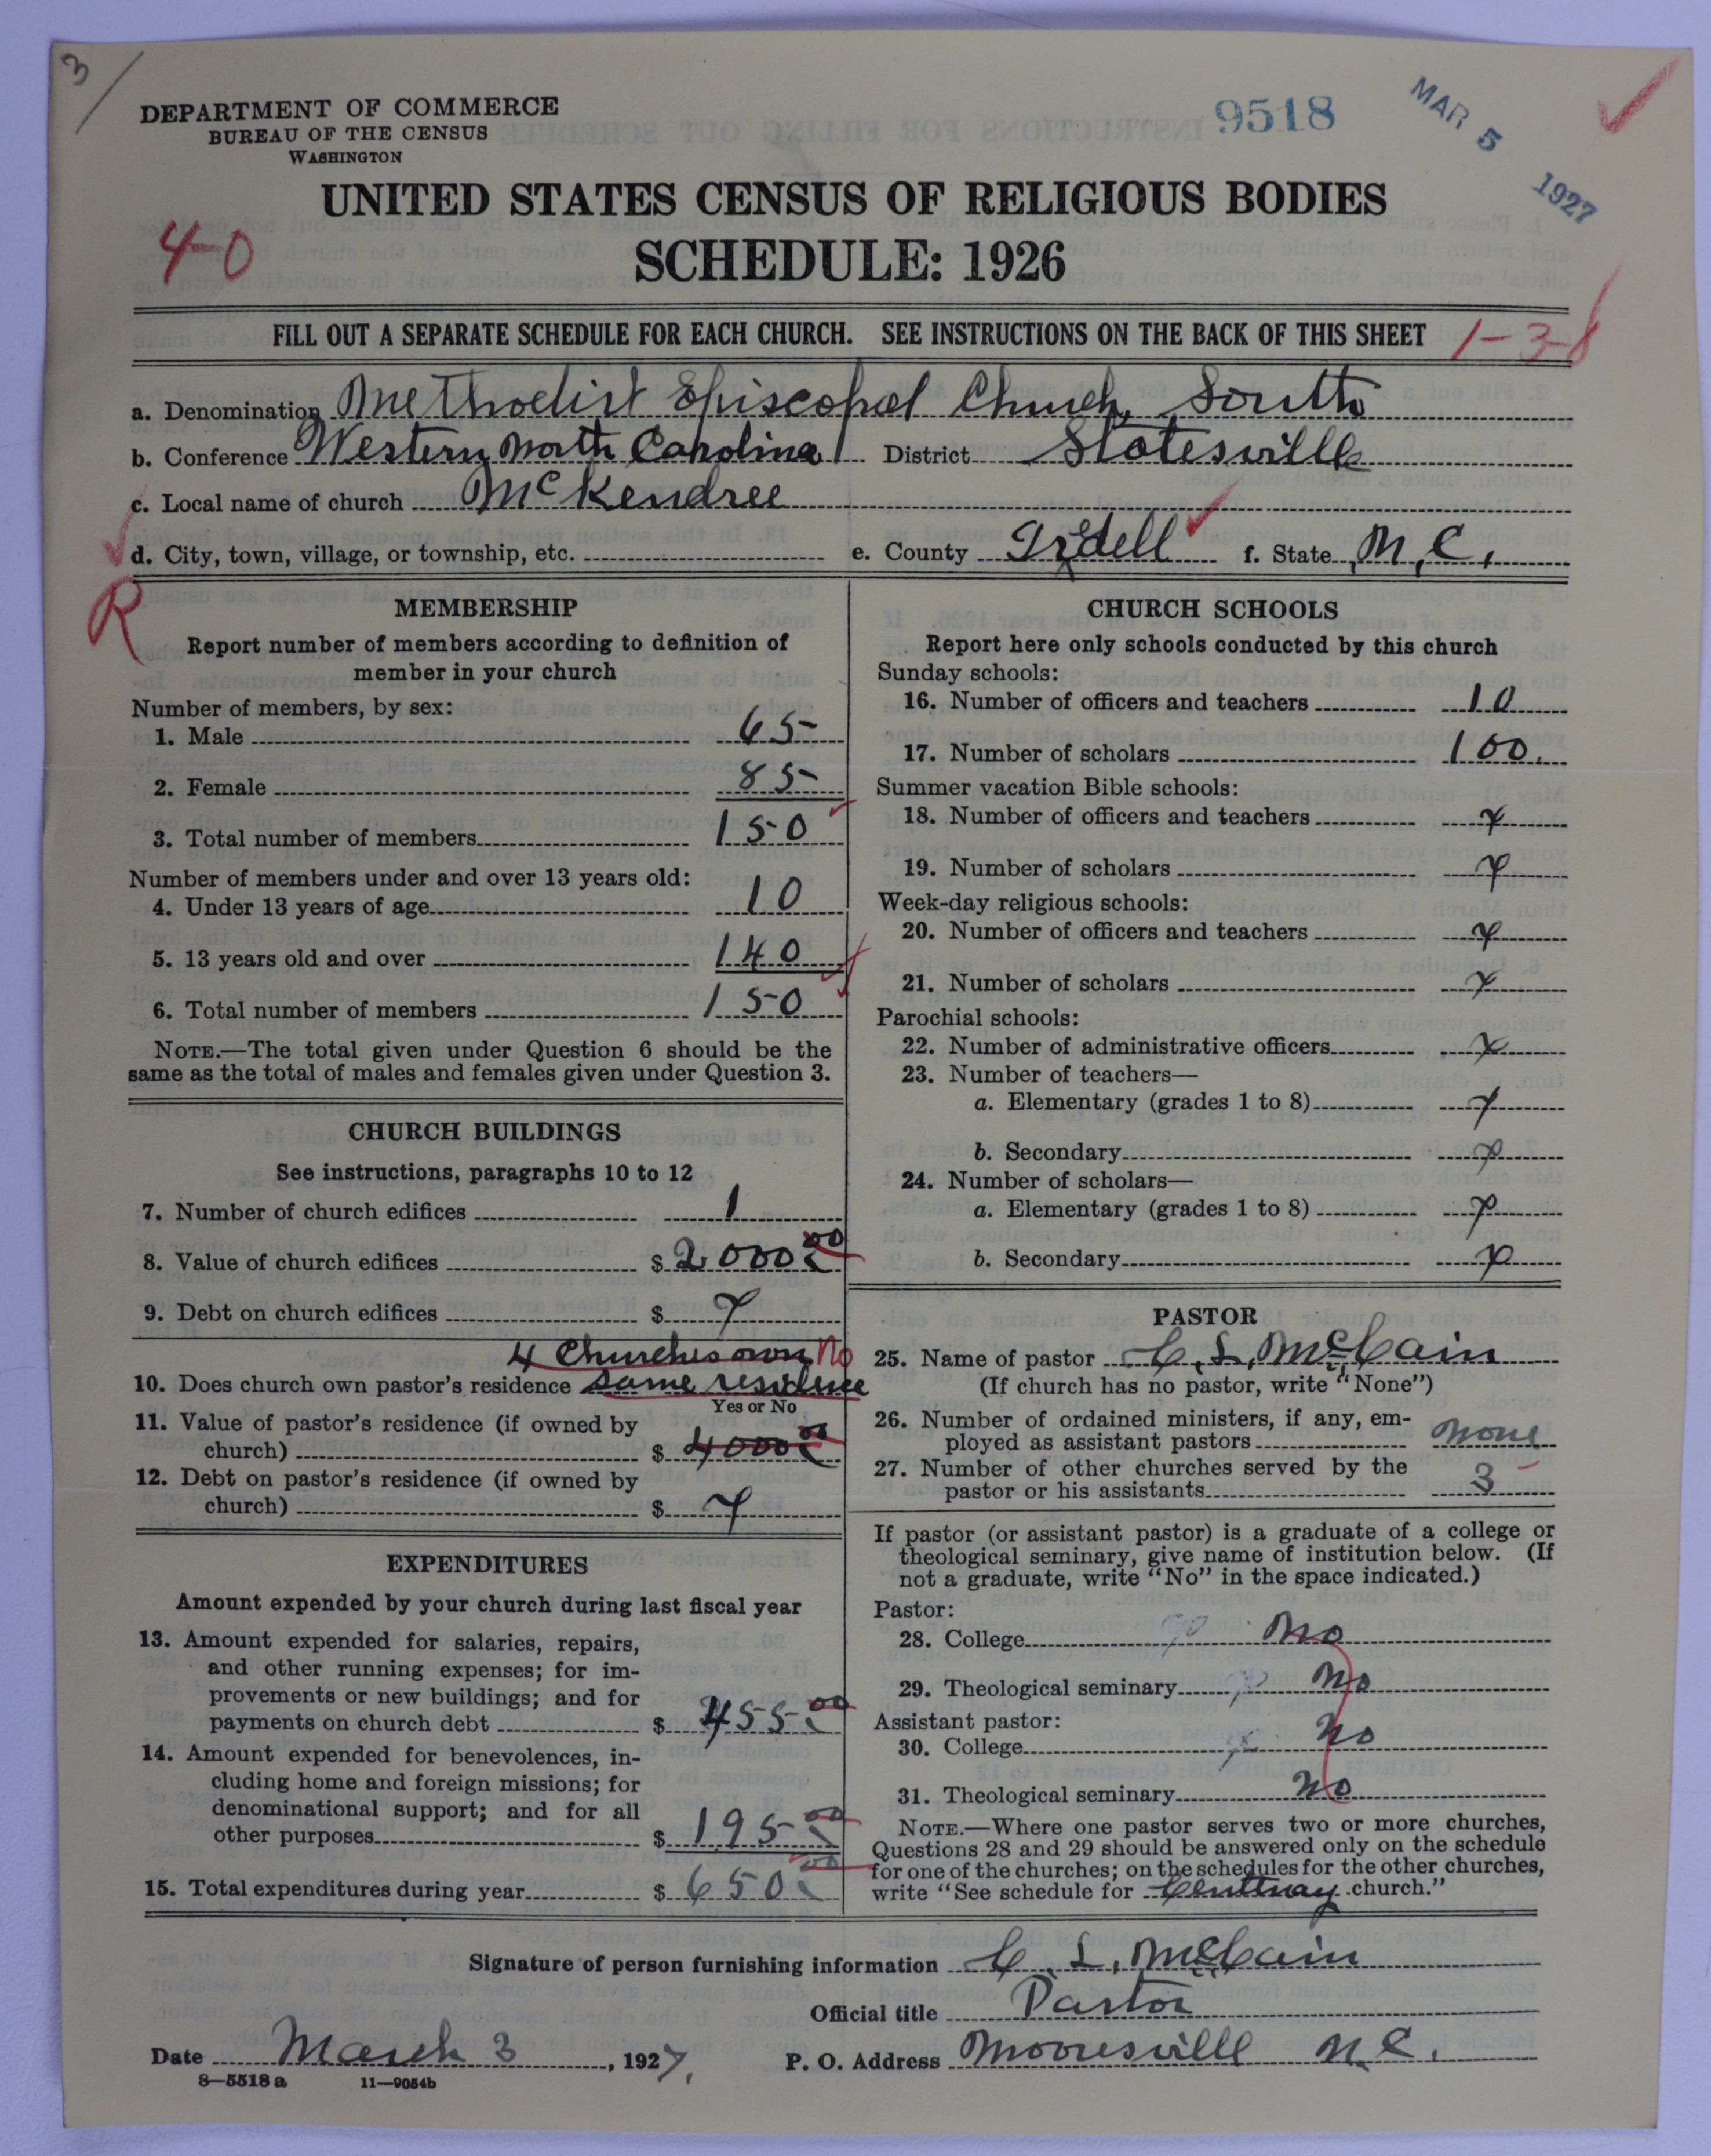 3/
DEPARTMENT OF COMMERCE
BUREAU OF THE CENSUS
WASHINGTON
9518
MAR 5 1927
UNITED STATES CENSUS OF RELIGIOUS BODIES
40
SCHEDULE: 1926
FILL OUT A SEPARATE SCHEDULE FOR EACH CHURCH. SEE INSTRUCTIONS ON THE BACK OF THIS SHEET 1-3-8
a. Denomination Methodist Episcopal Church, South
b. Conference Western North Carolina District Statesville
c. Local name of church McKendree
d. City, town, village, or township, etc. e. County Iredell f. State N.C.
R
MEMBERSHIP
Report number of members according to definition of
member in your church
Number of members, by sex:
1. Male 65
2. Female 85
3. Total number of members 150
Number of members under and over 13 years old:
4. Under 13 years of age 10
5. 13 years old and over 140
6. Total number of members 150
NOTE.—The total given under Question 6 should be the
same as the total of males and females given under Question 3.
CHURCH BUILDINGS
See instructions, paragraphs 10 to 12
7. Number of church edifices 1
8. Value of church edifices $ 2000.00
9. Debt on church edifices $ x
4 Churches own No
10. Does church own pastor's residence same residence
Yes or No
11. Value of pastor's residence (if owned by
church) $ 4000.00
12. Debt on pastor's residence (if owned by
church) $ x
EXPENDITURES
Amount expended by your church during last fiscal year
13. Amount expended for salaries, repairs,
and other running expenses; for im-
provements or new buildings; and for
payments on church debt $ 455.00
14. Amount expended for benevolences, in-
cluding home and foreign missions; for
denominational support; and for all
other purposes $ 195.00
15. Total expenditures during year $ 650.00
CHURCH SCHOOLS
Report here only schools conducted by this church
Sunday schools:
16. Number of officers and teachers 10
17. Number of scholars 100.
Summer vacation Bible schools:
18. Number of officers and teachers x
19. Number of scholars x
Week-day religious schools:
20. Number of officers and teachers x
21. Number of scholars x
Parochial schools:
22. Number of administrative officers x
23. Number of teachers—
a. Elementary (grades 1 to 8) x
b. Secondary x
24. Number of scholars—
a. Elementary (grades 1 to 8) x
b. Secondary x
PASTOR
25. Name of pastor C. L. McCain
(If church has no pastor, write "None")
26. Number of ordained ministers, if any, em-
ployed as assistant pastors none
27. Number of other churches served by the
pastor or his assistants 3
If pastor (or assistant pastor) is a graduate of a college or
theological seminary, give name of institution below. (If
not a graduate, write "No" in the space indicated.)
Pastor:
28. College No
29. Theological seminary No
Assistant pastor:
30. College No
31. Theological seminary No
NOTE.—Where one pastor serves two or more churches,
Questions 28 and 29 should be answered only on the schedule
for one of the churches; on the schedules for the other churches,
write "See schedule for Centenay church."
Signature of person furnishing information C. L. McCain
Official title Pastor
Date March 3, 1927. P. O. Address Mooresville N.C.
8—5518 a 11—9054b